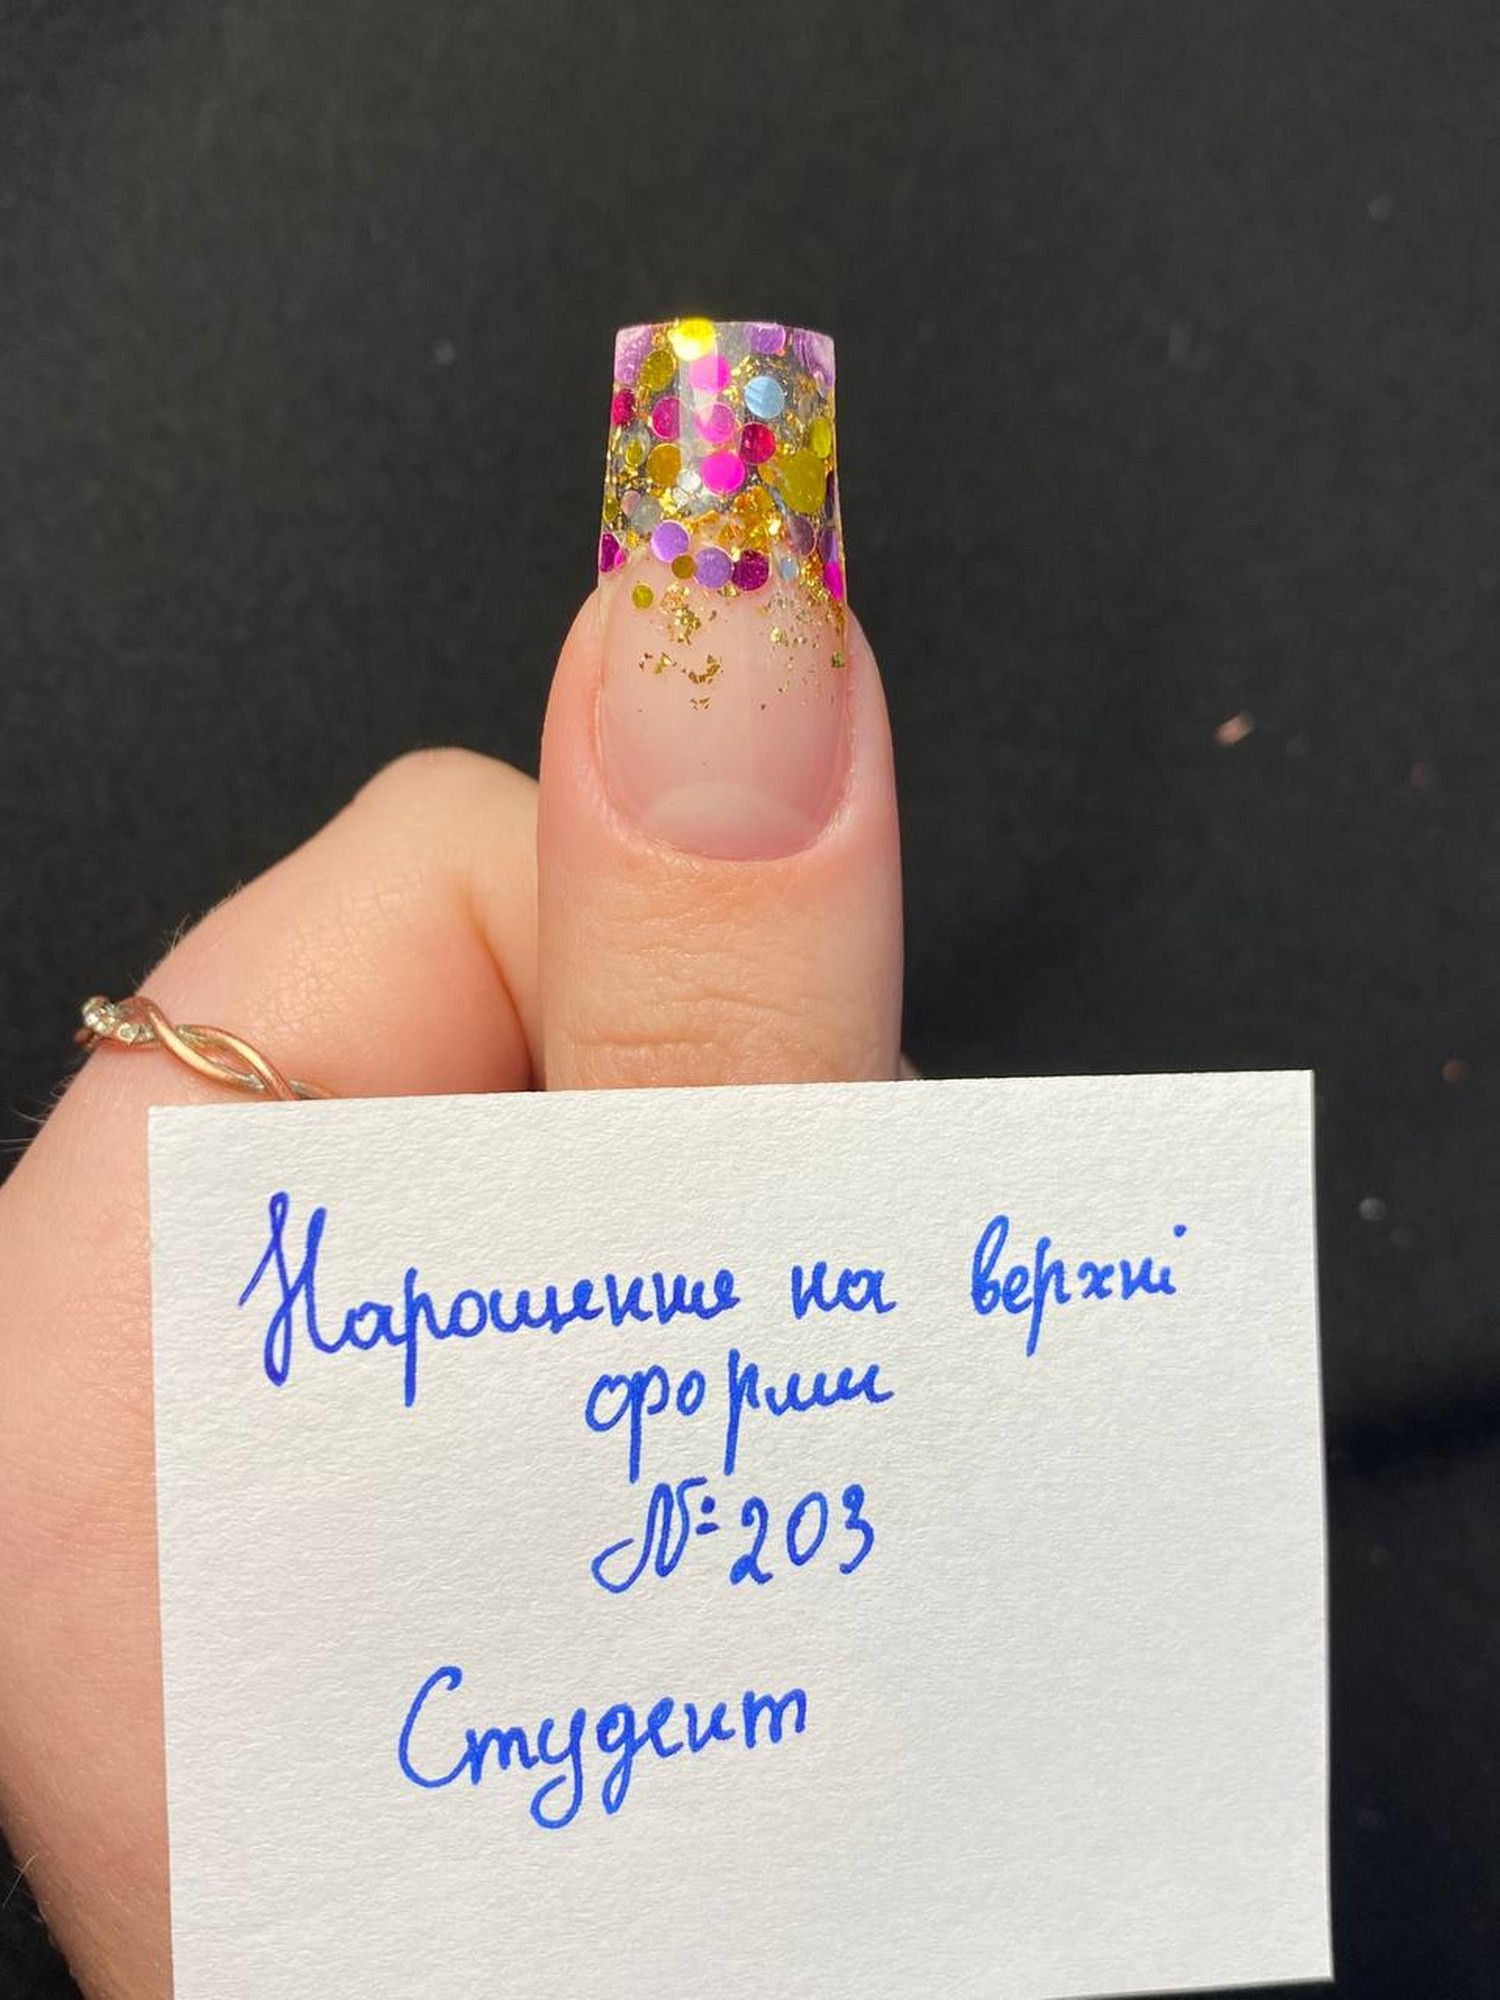 Нарощення на верхні
форми
№203
Студент